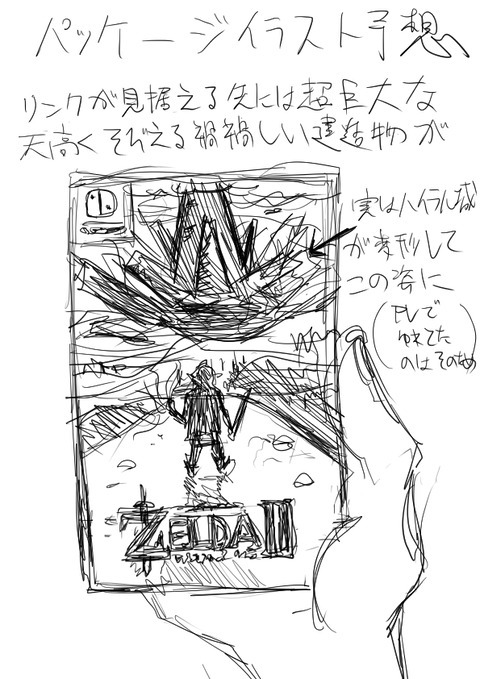 パッケージイラスト予想
リンクが見据える先には超巨大な
天高くそびえる禍禍しい建造物が
実はハイラル城
が変形して
この姿に
(PVで
映ってた
のはそのため)
ZELDA II